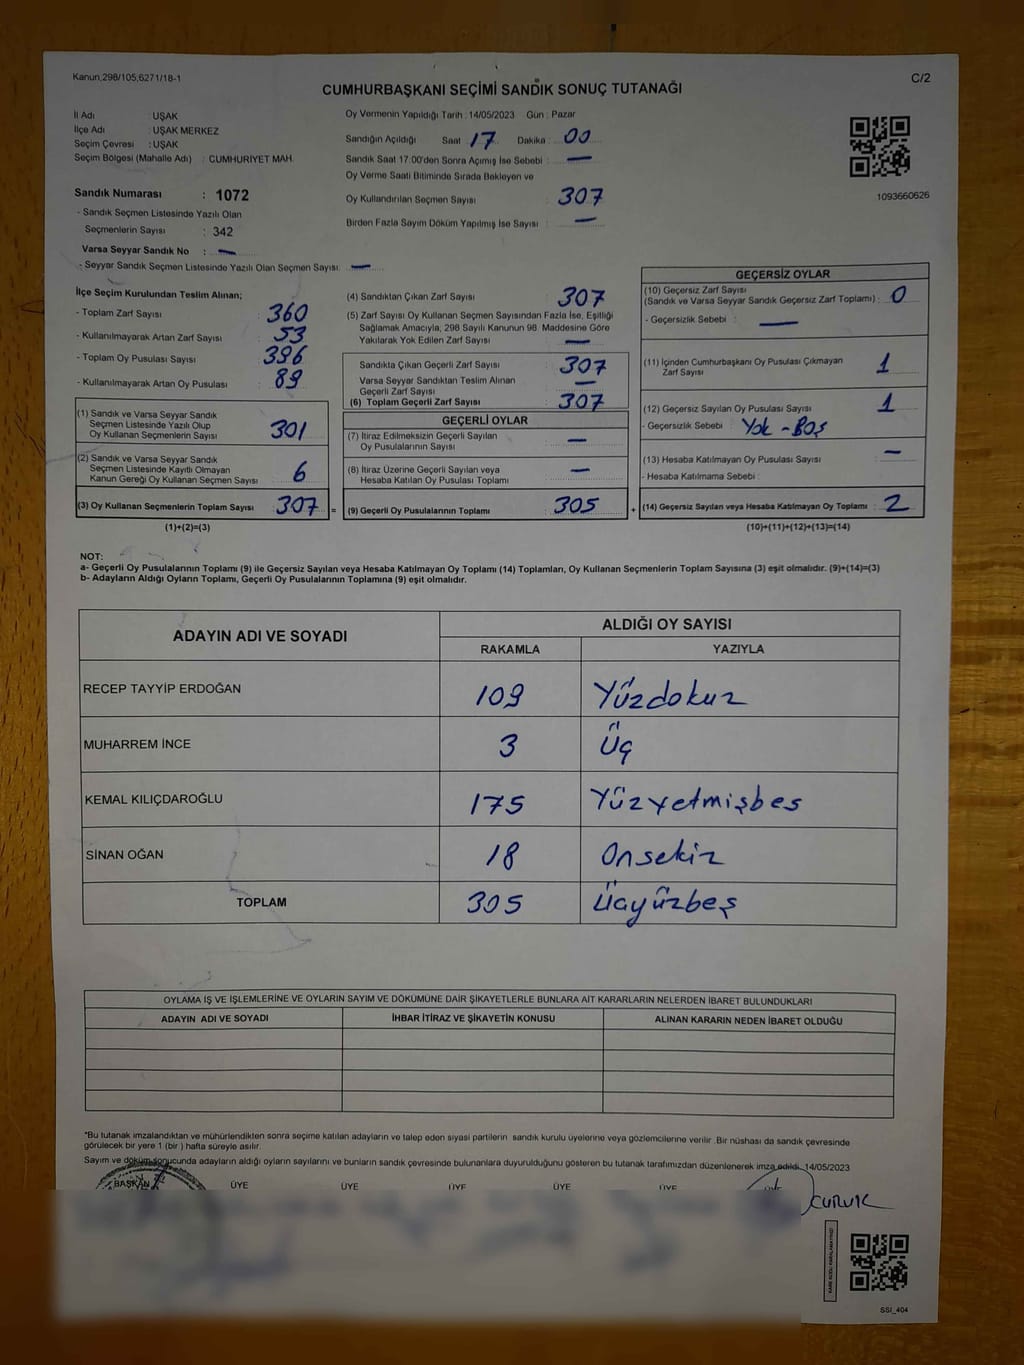 Kanun,298/105,6271/18-1
C/2
CUMHURBAŞKANI SEÇİMİ SANDIK SONUÇ TUTANAĞI
İl Adı : UŞAK
İlçe Adı : UŞAK MERKEZ
Seçim Çevresi : UŞAK
Seçim Bölgesi (Mahalle Adı) : CUMHURİYET MAH.
Sandık Numarası : 1072
- Sandık Seçmen Listesinde Yazılı Olan
Seçmenlerin Sayısı : 342
Varsa Seyyar Sandık No : —
- Seyyar Sandık Seçmen Listesinde Yazılı Olan Seçmen Sayısı: —
Oy Vermenin Yapıldığı Tarih : 14/05/2023 Gün : Pazar
Sandığın Açıldığı Saat : 17 Dakika : 00
Sandık Saat 17.00'den Sonra Açımış İse Sebebi : —
Oy Verme Saati Bitiminde Sırada Bekleyen ve
Oy Kullandırılan Seçmen Sayısı : 307
Birden Fazla Sayım Döküm Yapılmış İse Sayısı : —
1093660626
İlçe Seçim Kurulundan Teslim Alınan;
- Toplam Zarf Sayısı : 360
- Kullanılmayarak Artan Zarf Sayısı : 53
- Toplam Oy Pusulası Sayısı : 396
- Kullanılmayarak Artan Oy Pusulası : 89
(1) Sandık ve Varsa Seyyar Sandık
Seçmen Listesinde Yazılı Olup
Oy Kullanan Seçmenlerin Sayısı : 301
(2) Sandık ve Varsa Seyyar Sandık
Seçmen Listesinde Kayıtlı Olmayan
Kanun Gereği Oy Kullanan Seçmen Sayısı : 6
(3) Oy Kullanan Seçmenlerin Toplam Sayısı : 307 =
(1)+(2)=(3)
(4) Sandıktan Çıkan Zarf Sayısı : 307
(5) Zarf Sayısı Oy Kullanan Seçmen Sayısından Fazla İse, Eşitliği
Sağlamak Amacıyla, 298 Sayılı Kanunun 98. Maddesine Göre
Yakılarak Yok Edilen Zarf Sayısı : —
Sandıkta Çıkan Geçerli Zarf Sayısı : 307
Varsa Seyyar Sandıktan Teslim Alınan
Geçerli Zarf Sayısı : —
(6) Toplam Geçerli Zarf Sayısı : 307
GEÇERLİ OYLAR
(7) İtiraz Edilmeksizin Geçerli Sayılan
Oy Pusulalarının Sayısı : —
(8) İtiraz Üzerine Geçerli Sayılan veya
Hesaba Katılan Oy Pusulası Toplamı : —
(9) Geçerli Oy Pusulalarının Toplamı : 305 +
GEÇERSİZ OYLAR
(10) Geçersiz Zarf Sayısı
(Sandık ve Varsa Seyyar Sandık Geçersiz Zarf Toplamı) : 0
- Geçersizlik Sebebi : —
(11) İçinden Cumhurbaşkanı Oy Pusulası Çıkmayan
Zarf Sayısı : 1
(12) Geçersiz Sayılan Oy Pusulası Sayısı : 1
- Geçersizlik Sebebi : Yok - Boş
(13) Hesaba Katılmayan Oy Pusulası Sayısı : —
- Hesaba Katılmama Sebebi :
(14) Geçersiz Sayılan veya Hesaba Katılmayan Oy Toplamı : 2
(10)+(11)+(12)+(13)=(14)
NOT:
a- Geçerli Oy Pusulalarının Toplamı (9) ile Geçersiz Sayılan veya Hesaba Katılmayan Oy Toplamı (14) Toplamları, Oy Kullanan Seçmenlerin Toplam Sayısına (3) eşit olmalıdır. (9)+(14)=(3)
b- Adayların Aldığı Oyların Toplamı, Geçerli Oy Pusulalarının Toplamına (9) eşit olmalıdır.
ADAYIN ADI VE SOYADI
ALDIĞI OY SAYISI
RAKAMLA YAZIYLA
RECEP TAYYİP ERDOĞAN 109 Yüzdokuz
MUHARREM İNCE 3 Üç
KEMAL KILIÇDAROĞLU 175 Yüzyetmişbes
SİNAN OĞAN 18 Onsekiz
TOPLAM 305 Üçyüzbeş
OYLAMA İŞ VE İŞLEMLERİNE VE OYLARIN SAYIM VE DÖKÜMÜNE DAİR ŞİKAYETLERLE BUNLARA AİT KARARLARIN NELERDEN İBARET BULUNDUKLARI
ADAYIN ADI VE SOYADI İHBAR İTİRAZ VE ŞİKAYETİN KONUSU ALINAN KARARIN NEDEN İBARET OLDUĞU
*Bu tutanak imzalandıktan ve mühürlendikten sonra seçime katılan adayların ve talep eden siyasi partilerin sandık kurulu üyelerine veya gözlemcilerine verilir .Bir nüshası da sandık çevresinde
görülecek bir yere 1 (bir ) hafta süreyle asılır.
Sayım ve döküm sonucunda adayların aldığı oyların sayılarını ve bunların sandık çevresinde bulunanlara duyurulduğunu gösteren bu tutanak tarafımızdan düzenlenerek imza edildi. 14/05/2023
BAŞKAN ÜYE ÜYE ÜYE ÜYE ÜYE
SSİ_404